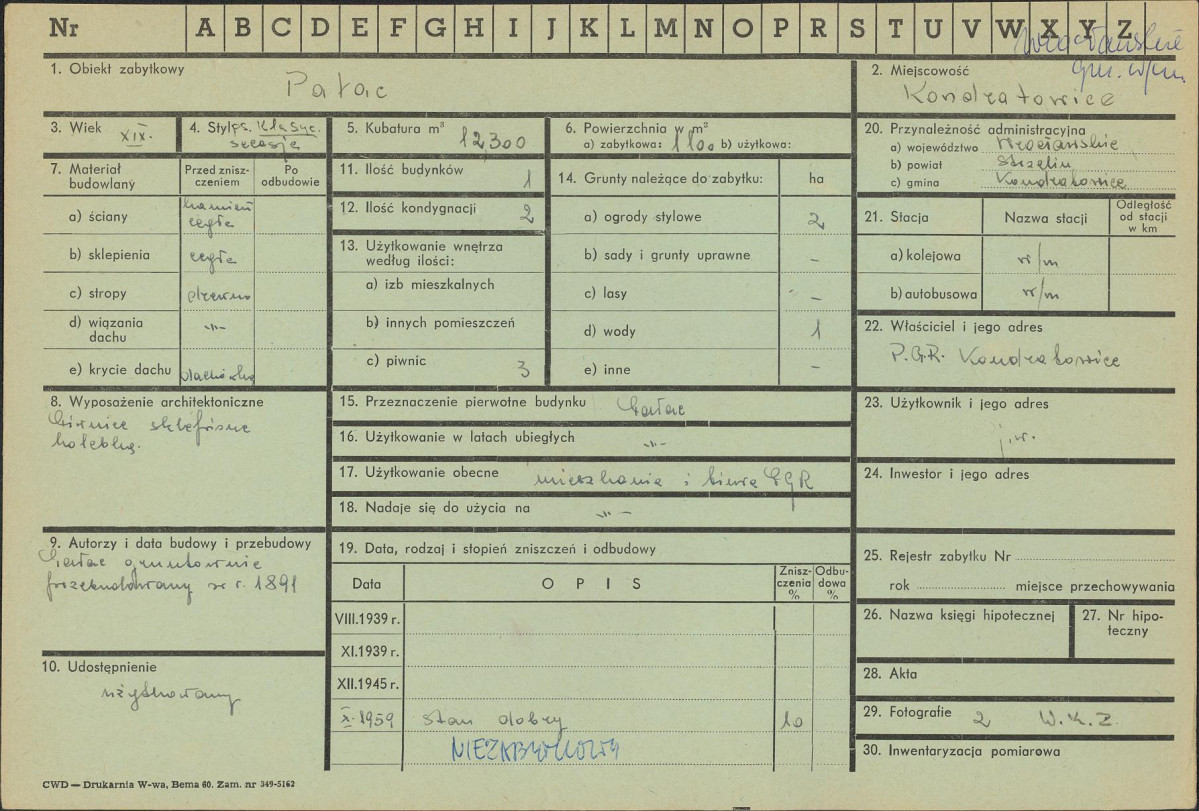 Nr A B C D E F G H I J K L M N O P R S T U V W X Y Z
Wrocławskie
gm. w/m.
1. Obiekt zabytkowy
Pałac
2. Miejscowość
Kondratowice
3. Wiek
XIX.
4. Styl ps. klasyc.
secesja
5. Kubatura m³
12300
6. Powierzchnia w m²
a) zabytkowa: 1100 b) użytkowa:
7. Materiał budowlany
Przed zniszczeniem
Po odbudowie
a) ściany
kamień
cegła
b) sklepienia
cegła
c) stropy
drewno
d) wiązania dachu
-„-
e) krycie dachu
dachówka
8. Wyposażenie architektoniczne
Piwnice sklepione
kolebką.
9. Autorzy i data budowy i przebudowy
Pałac gruntownie
przebudowany w r. 1891
10. Udostępnienie
użytkowany
11. Ilość budynków
1
12. Ilość kondygnacji
2
13. Użytkowanie wnętrza
według ilości:
a) izb mieszkalnych
b) innych pomieszczeń
c) piwnic
3
14. Grunty należące do zabytku: ha
a) ogrody stylowe
2
b) sady i grunty uprawne
-
c) lasy
-
d) wody
1
e) inne
-
15. Przeznaczenie pierwotne budynku
Pałac
16. Użytkowanie w latach ubiegłych
-„-
17. Użytkowanie obecne
mieszkania i biura PGR
18. Nadaje się do użycia na
-„-
19. Data, rodzaj i stopień zniszczeń i odbudowy
Data OPIS Zniszczenia % Odbudowa %
VIII.1939 r.
XI.1939 r.
XII.1945 r.
X.1959 stan dobry 10
20. Przynależność administracyjna
a) województwo Wrocławskie
b) powiat Strzelin
c) gmina Kondratowice
21. Stacja Nazwa stacji Odległość od stacji w km
a) kolejowa w/m
b) autobusowa w/m
22. Właściciel i jego adres
P.G.R. Kondratowice
23. Użytkownik i jego adres
j.w.
24. Inwestor i jego adres
25. Rejestr zabytku Nr
rok miejsce przechowywania
26. Nazwa księgi hipotecznej
27. Nr hipoteczny
28. Akta
29. Fotografie 2 W.K.Z.
30. Inwentaryzacja pomiarowa
CWD — Drukarnia W-wa, Bema 60. Zam. nr 349-5162